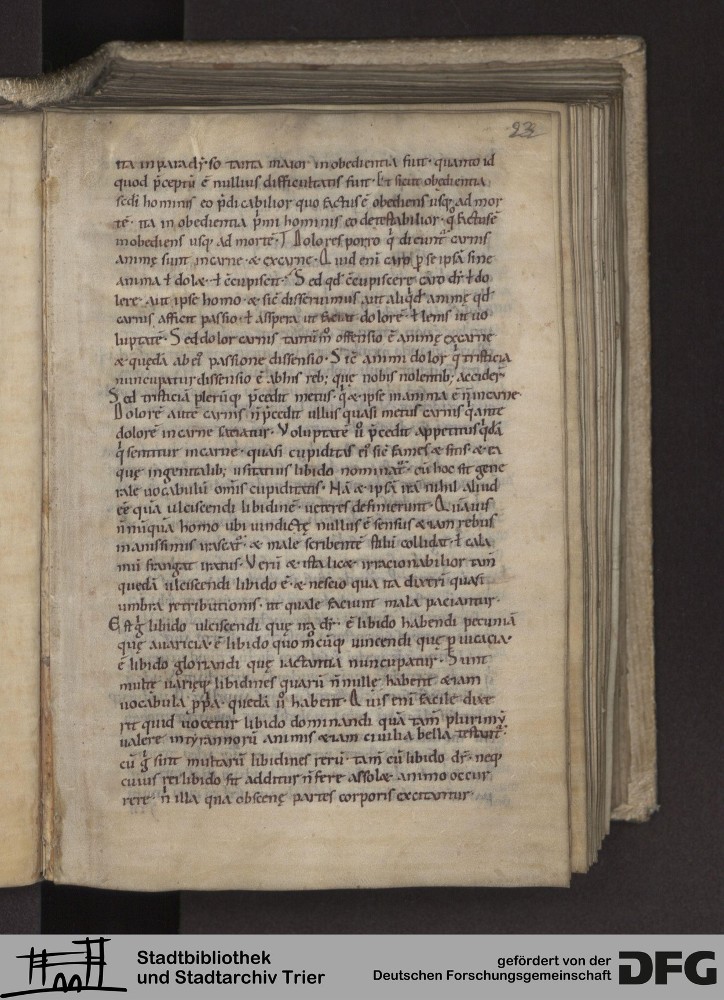 23
ita in paradẏso tanta maior inobedientia fuit · quanto id
quod p̄ceptū ē nullius difficultatis fuit · Et sicut obędientia
sedi hominis eo p̄dicabilior quo factus ē obędiens usq; ad mor
tē · ita in obedientia p̄mi hominis eo detestabilior · q̊ factus ē
inobediens usq; ad mortē ·
Dolores porro q̇ dicunt᷑ carnis
animę sunt in carne · & ex carne · Quid enī caro p se ipsā sine
anima ł dol& · ł c̄cupiscit · Sed qd̄ c̄cupiscere caro dr̄ ł do
lere · aut ipse homo · & sic̄ disseruimus aut aliqd̄ animę qd̄
carnis afficit passio · ł aspera ut faciat dolorē · ł lenis ut uo
luptatē · Sed dolor carnis tantūm offensio ē animę ex carne
& quędā ab ei᷒ passione dissensio · Sic̄ animi dolor q̇ tristicia
nuncupatur dissensio ē ab his reb; · quę nobis nolentib; accider̄
Sed tristiciā plerūq; p̄cedit metus · q̇ & ipse in anima ē n̄ in carne ·
Dolorē autē carnis n̄ p̄cedit ullus quasi metus carnis q̇ ante
dolorē in carne sentiatur · Voluptatē ů p̄cedit appetitus q̇dā
q̇ sentitur in carne · quasi cupiditas ei᷒ sic̄ fames & sitis · & ea
quę in genitalib; usitatius libido nominat᷑ · cū hoc sit gene
rale uocabulū om̄is cupiditatis · Nā & ipsā irā nihil aliud
ēē quā ulciscendi libidinē · ueteres definierunt · Quāuis
n̄nūquā homo ubi uindictę nullus ē sensus & iam rebus
inanissimis irascat᷑ · & male scribentē stilū collidat · ł cala
mū frangat iratus · Verū & ista lic& irracionabilior tam̄
quedā ulciscendi libido ē · & nescio qua ita dixerī quasi
umbra retributionis · ut qui male faciunt mala paciantur ·
Est g̊ libido ulciscendi quę ira dr̄ · ē libido habendi pecuniā
quę auaricia · ē libido quomōcūq; uincendi quę puicacia ·
ē libido gloriandi quę iactantia nuncupatur · Sunt
multę uarięq; libidines quarū n̄nullę habent & iam
uocabula ppa · quedā ů habent · Quis enī facile dixe
rit quid uocetur libido dominandi quā tam̄ plurimū
ualere in tẏrannorū animis & iam ciuilia bella testant᷑ ·
cū g̊ sint multarū libidines rerū · tam̄ cū libido dr̄ · neq;
cuius rei libido sit additur n̄ fere assol& · animo occur
rere · n̄ illa qua obscenę partes corporis excitantur ·
Stadtbibliothek
und Stadtarchiv Trier
gefördert von der
Deutschen Forschungsgemeinschaft
DFG